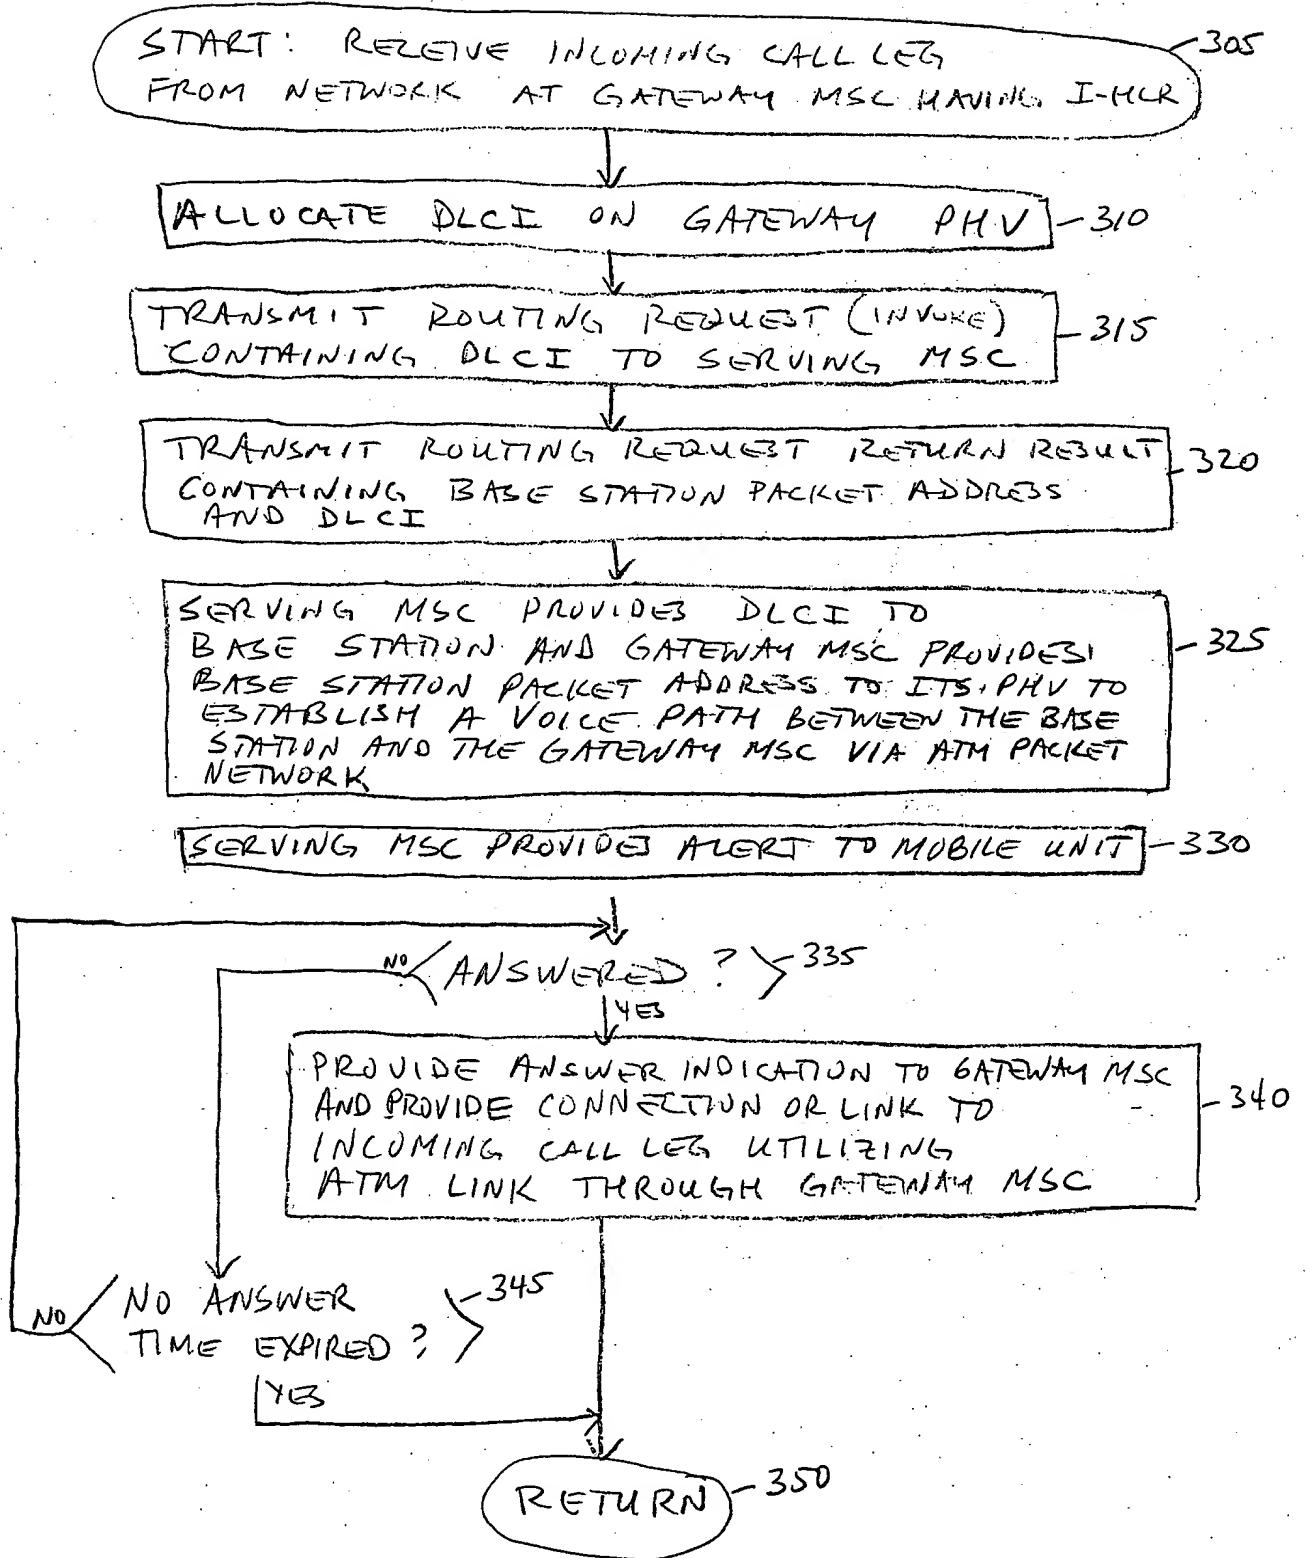 START: RECEIVE INCOMING CALL LEG
FROM NETWORK AT GATEWAY MSC HAVING I-HLR
305
ALLOCATE DLCI ON GATEWAY PHV
310
TRANSMIT ROUTING REQUEST (INVOKE)
CONTAINING DLCI TO SERVING MSC
315
TRANSMIT ROUTING REQUEST RETURN RESULT
CONTAINING BASE STATION PACKET ADDRESS
AND DLCI
320
SERVING MSC PROVIDES DLCI TO
BASE STATION AND GATEWAY MSC PROVIDES
BASE STATION PACKET ADDRESS TO ITS PHV TO
ESTABLISH A VOICE PATH BETWEEN THE BASE
STATION AND THE GATEWAY MSC VIA ATM PACKET
NETWORK
325
SERVING MSC PROVIDES ALERT TO MOBILE UNIT
330
NO
ANSWERED ?
335
YES
PROVIDE ANSWER INDICATION TO GATEWAY MSC
AND PROVIDE CONNECTION OR LINK TO
INCOMING CALL LEG UTILIZING
ATM LINK THROUGH GATEWAY MSC
340
NO
NO ANSWER
TIME EXPIRED ?
345
YES
RETURN
350